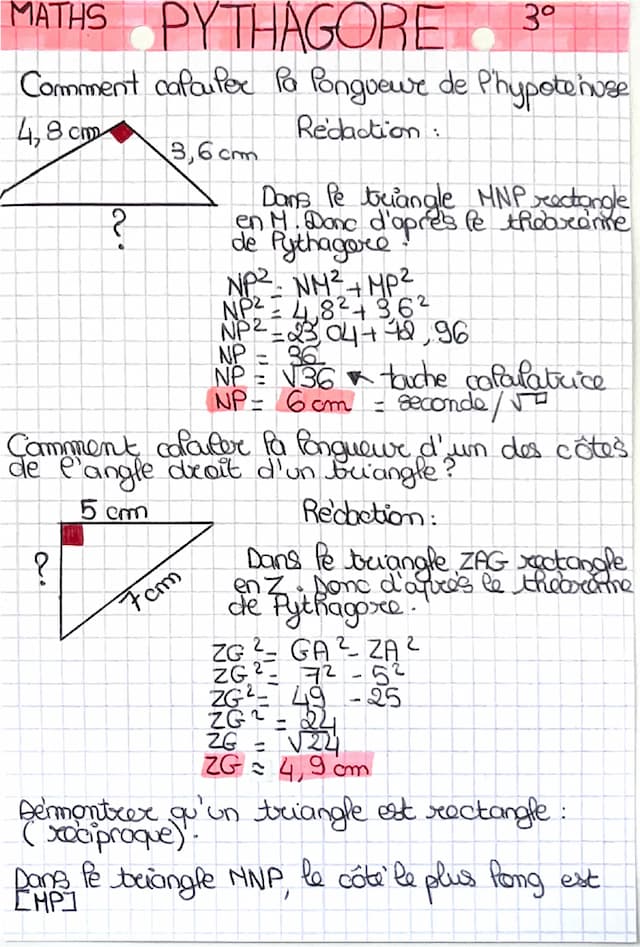 MATHS PYTHAGORE 3°
Comment calculer la longueur de l'hypoténuse
4,8 cm
3,6 cm
?
Rédaction :
Dans le triangle MNP rectangle
en M. Donc d'après le théorème
de Pythagore :
NP² = NM² + MP²
NP² = 4,8² + 3,6²
NP² = 23,04 + 12,96
NP = 36
NP = √36 ↖ touche calculatrice
NP = 6 cm = seconde/√
Comment calculer la longueur d'un des côtés
de l'angle droit d'un triangle ?
5 cm
?
7 cm
Rédaction :
Dans le triangle ZAG rectangle
en Z. Donc d'après le théorème
de Pythagore.
ZG² = GA² - ZA²
ZG² = 7² - 5²
ZG² = 49 - 25
ZG² = 24
ZG = √24
ZG ≈ 4,9 cm
Démontrer qu'un triangle est rectangle :
(réciproque).
Dans le triangle MNP, le côté le plus long est
[MP]